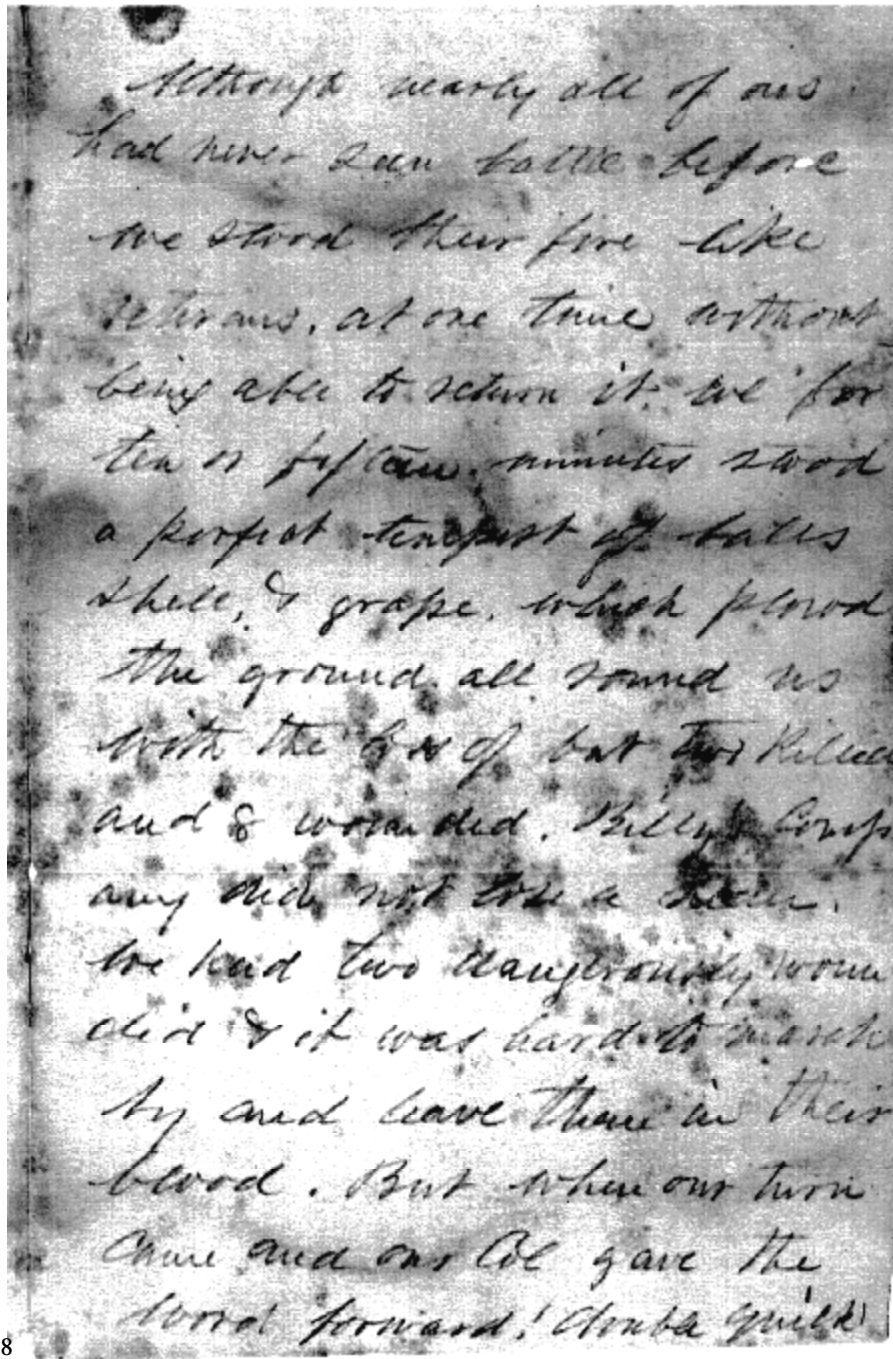 Although nearly all of ous
had never seen battle before
we stood their fire like
veterans. at one time without
being able to return it. we for
ten or fifteen minutes stood
a perfect tempest of balls
shell, & grape. which plowd
the ground all round us
with the loss of but two killed
and 8 wounded. Billy's Comp
any did not lose a man.
We had two daugerously woun
ded & it was hard to march
by and leave them in their
blood. But when our turn
came and our Col gave the
word forward! double quick
8